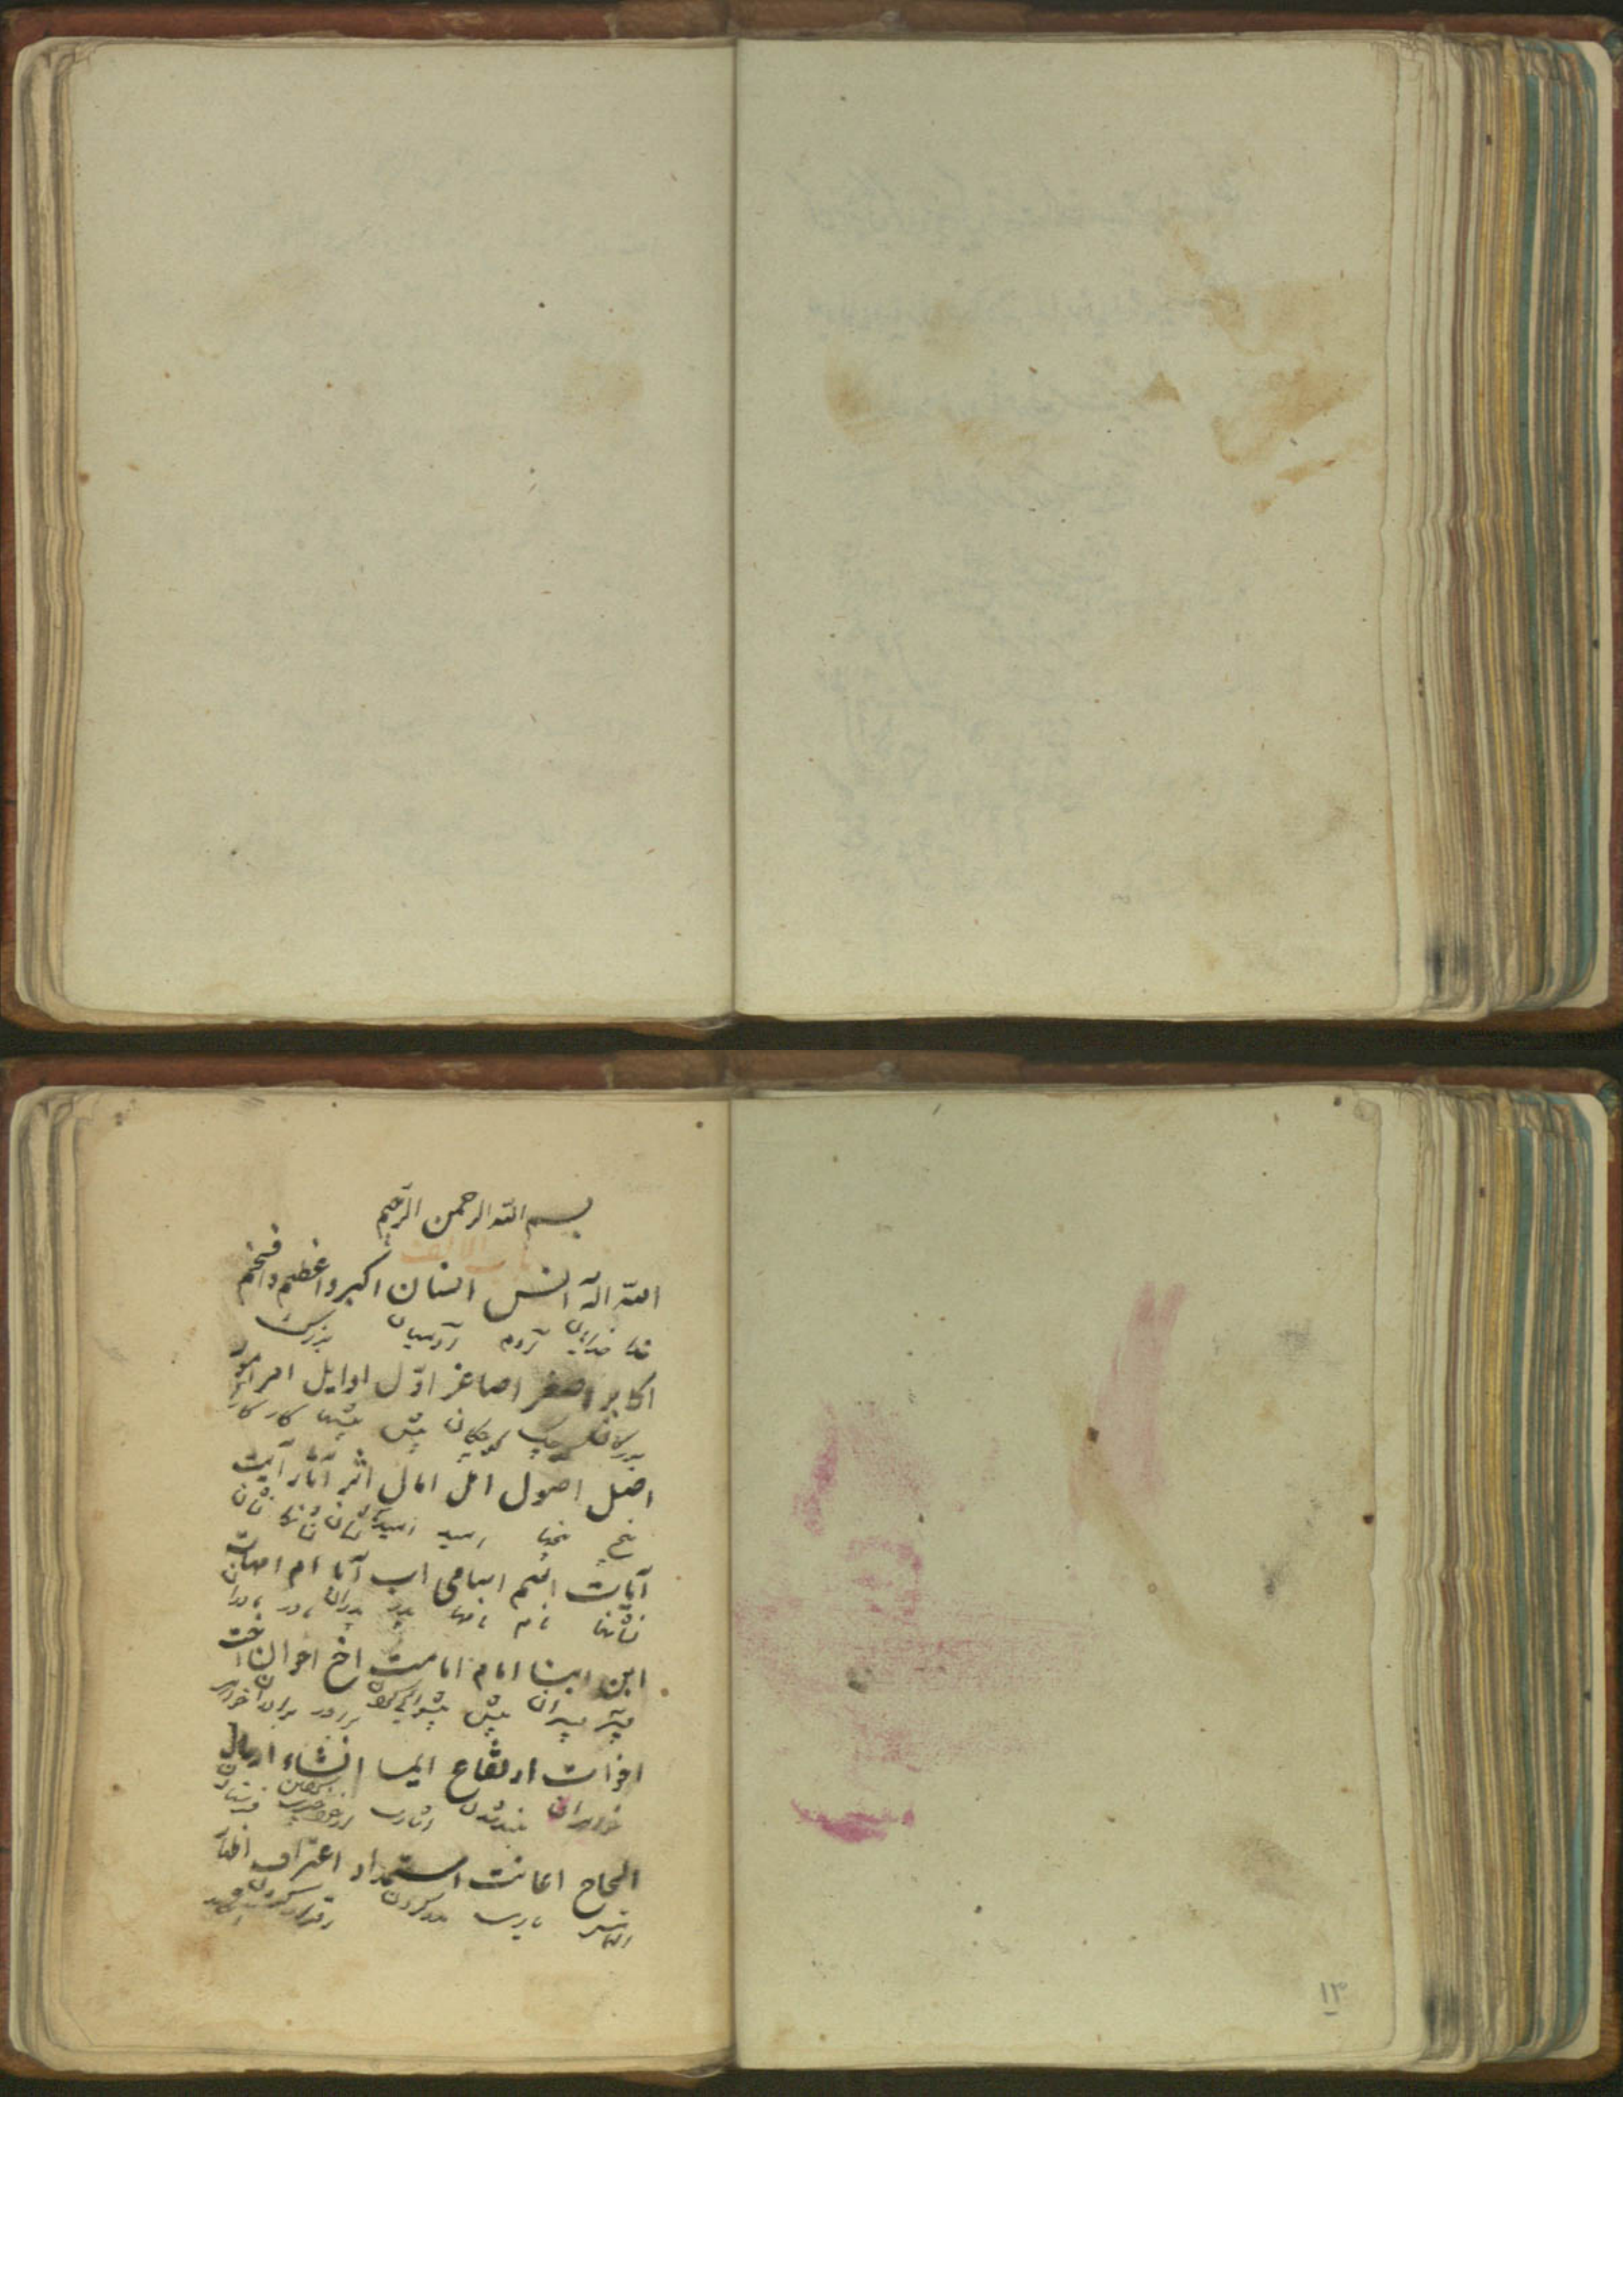 بسم الله الرحمن الرحیم
باب الالف
الله اله انس انسان اکبر و اعظم و افخم
خدا خدایان مردم آدمیان بزرک
اکابر اصغر اصاغر اوّل اوایل امر امور
بزرکان کوچک کوچکان پیش پیشها کار کارها
اصل اصول امل امال اثر آثار آیت
بیخ بیخها امید امیدها نشان نشانها نشان
آیات اسم اسامی اب آبا ام امهات
نشانها نام نامها پدر پدران مادر مادران
ابن ابنا امام امامت اخ اخوان اخت
پسر پسران پیش پیشوایی کردن برادر برادران خواهر
اخوات ارتفاع ایما انشاء ارسال
خواهران بلند شدن اشارت از خود چیزی گفتن فرستادن
الحاح اعانت استمداد اعتراف
یاری مدد کردن اقرار کردن
۱۳